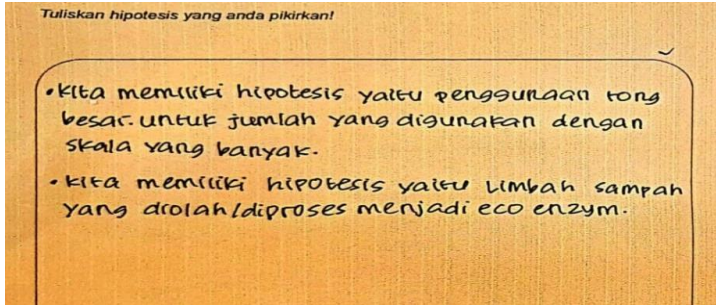 Tuliskan hipotesis yang anda pikirkan!
• Kita memiliki hipotesis yaitu penggunaan tong
besar untuk jumlah yang digunakan dengan
skala yang banyak.
• Kita memiliki hipotesis yaitu Limbah sampah
yang diolah/diproses menjadi eco enzym.